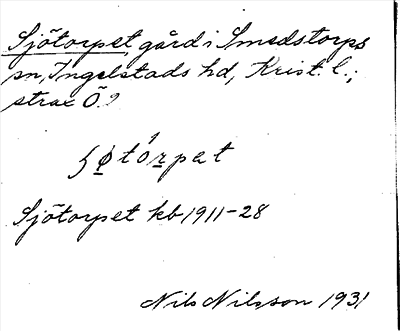 Sjötorpet, gård i Smedstorps
sn, Ingelstads hd, Krist. l.;
strax Ö.?
ʃø̱tórpet
Sjötorpet kb 1911-28
Nils Nilsson 1931